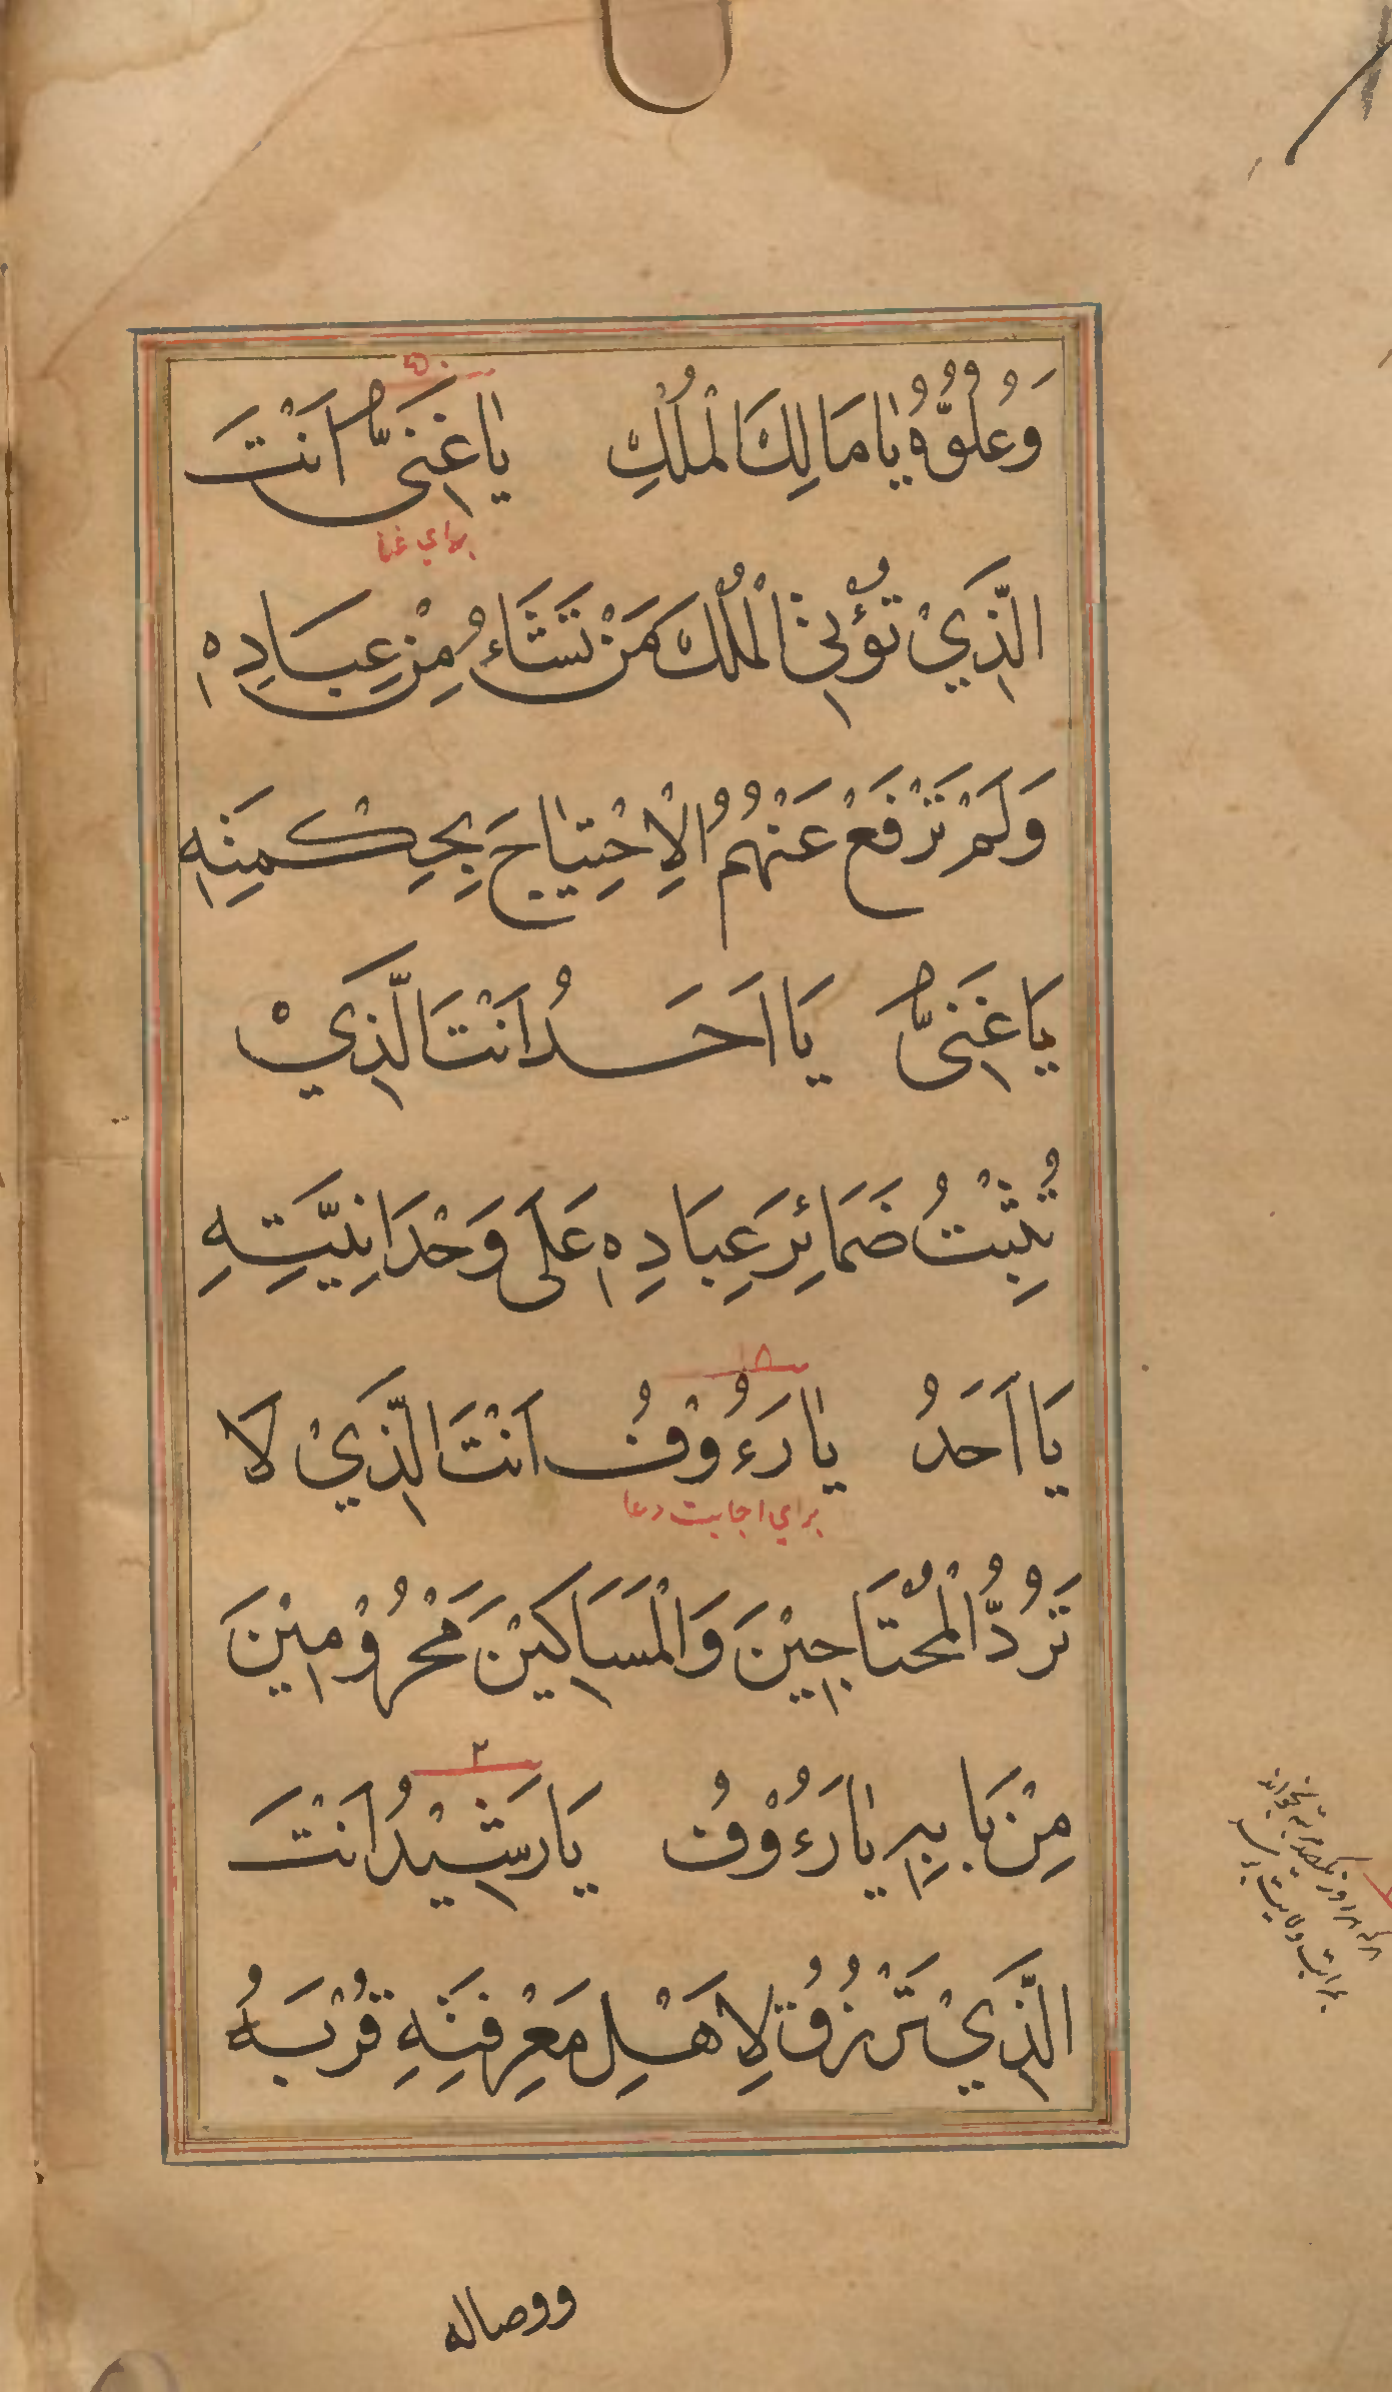 وَعُلُوُّهُ يَا مَالِكَ الْمُلْكِ يَا غَنِيُّ اَنْتَ
۵۰
برای غنا
الَّذِيْ تُؤْتِي الْمُلْكَ مَنْ تَشَاءُ مِنْ عِبَادِهٖ
وَلَمْ تَرْفَعْ عَنْهُمُ الْاِحْتِيَاجَ بِحِكْمَتِهٖ
يَا غَنِيُّ يَا اَحَدُ اَنْتَ الَّذِيْ
تُثْبِتُ ضَمَائِرَ عِبَادِهٖ عَلَى وَحْدَانِيَّتِهِ
يَا اَحَدُ يَا رَءُوْفُ اَنْتَ الَّذِيْ لَا
۱۸
براي اجابت دعا
تَرُدُّ الْمُحْتَاجِيْنَ وَالْمَسَاكِيْنَ مَحْرُوْمِيْنَ
مِنْ بَابِهِ يَا رَءُوْفُ يَا رَشِيْدُ اَنْتَ
۲
الَّذِيْ تَرْزُقُ لِاَهْلِ مَعْرِفَتِهِ قُرْبَهُ
ووصاله